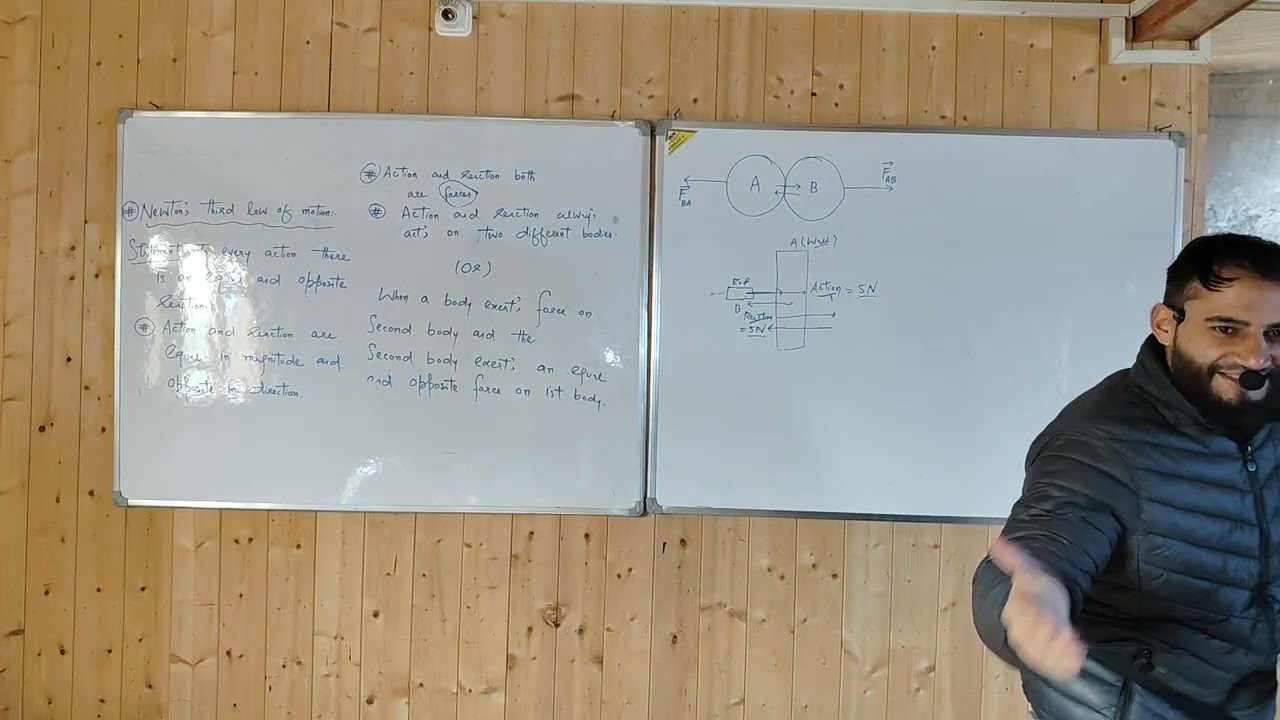 # Newton's third law of motion:
Statement: to every action there
is an equal and opposite
reaction.
# Action and reaction are
equal in magnitude and
opposite in direction.
# Action and reaction both
are forces
# Action and reaction always
act's on two different bodies.
(OR)
When a body exert's force on
Second body and the
Second body exert's an equal
and opposite force on 1st body.
A B
F BA
F AB
A (Wall)
Action = 5N
B
Reaction
= 5N